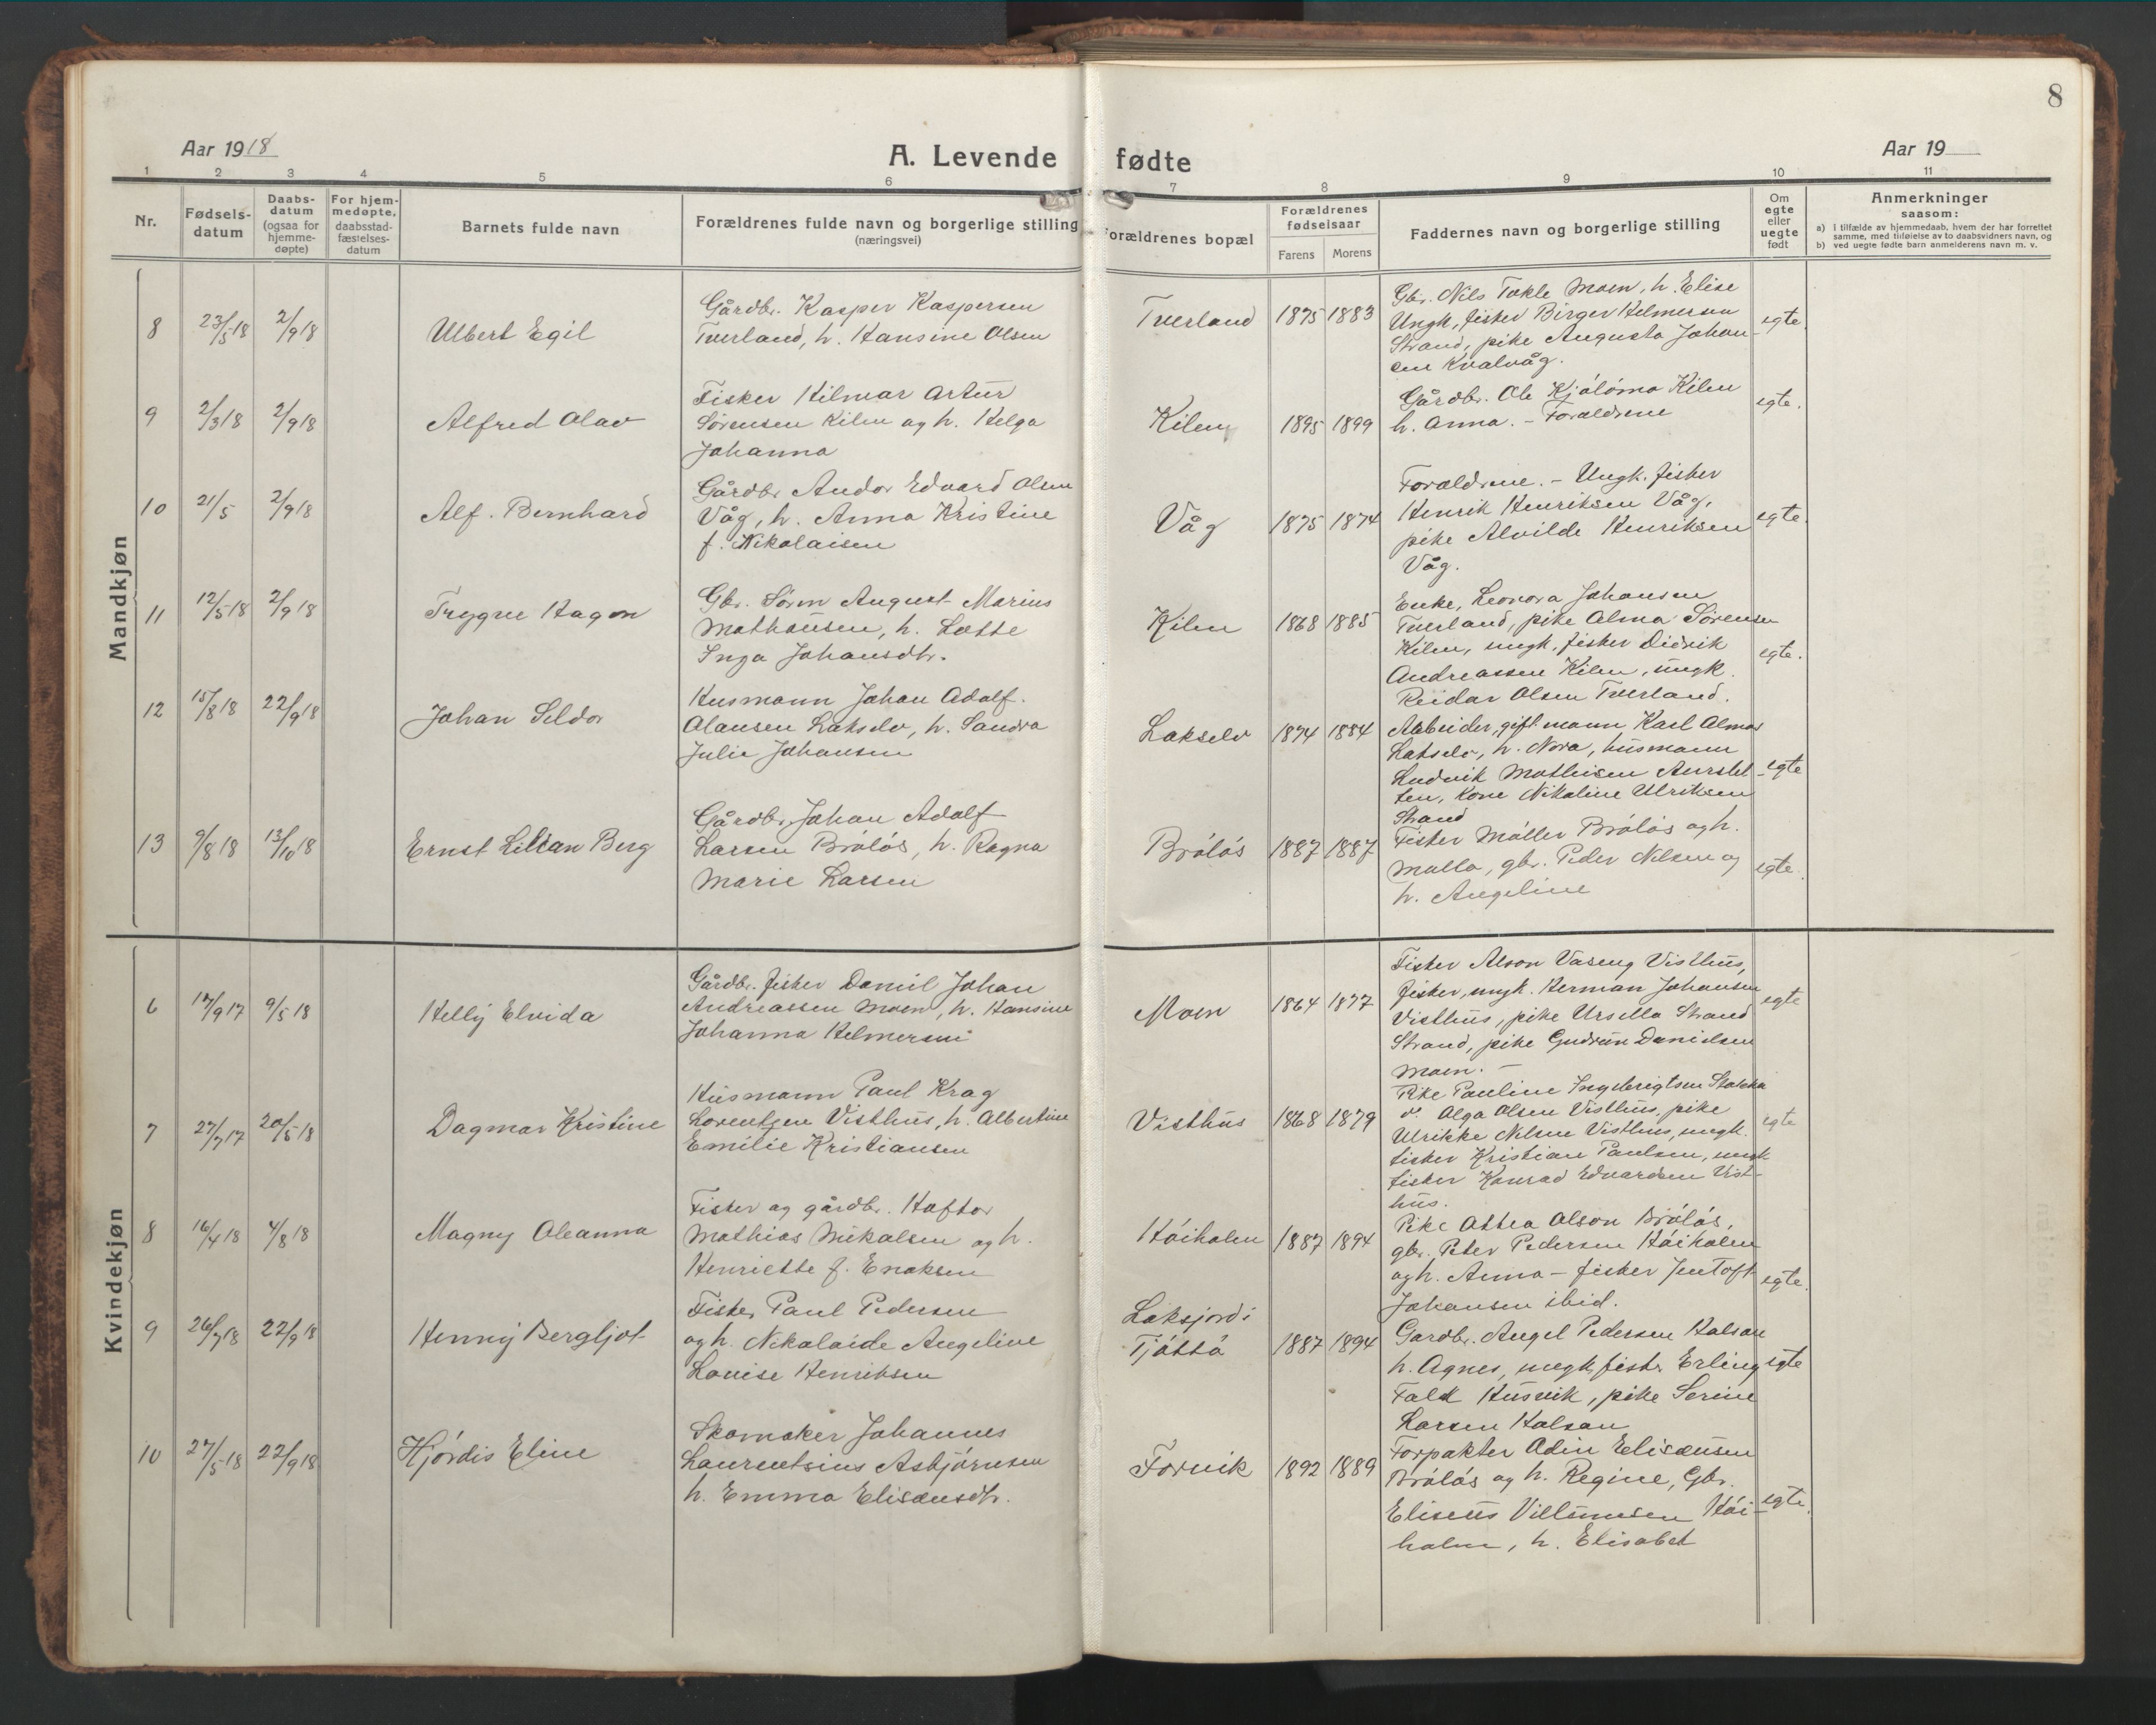 8
Aar 1918
A. Levende fødte
Aar 19
1 2 3 4 5 6 7 8 9 10 11
Nr.
Fødsels-
datum
Daabs-
datum
(ogsaa for
hjemme-
døpte)
For hjem-
medøpte,
daabsstad-
fæstelses-
datum
Barnets fulde navn
Forældrenes fulde navn og borgerlige stilling
(næringsvei)
orældrenes bopæl
Forældrenes
fødselsaar
Farens
Morens
Faddernes navn og borgerlige stilling
Om
egte
eller
uegte
født
Anmerkninger
saasom:
a) i tilfælde av hjemmedaab, hvem der har forrettet
samme, med tilføielse av to daabsvidners navn, og
b) ved uegte fødte barn anmelderens navn m. v.
Mandkjøn
8
23/5 18
2/9 18
Ulbert Egil
Gårdbr. Kasper Kaspersen
Tverland, h. Hansine Olsen
Tverland
1875 1883
Gbr. Nils Tokle Moen, h. Elise
Ungk, fisker Birger Helmersen
Strand, pike Augusta Johan-
sen Kvalvåg.
egte.
9
2/3 18
2/9 18
Alfred Olav
Fisker Hilmar Artur
Sørensen Kilen og h. Helga
Johanna
Kilen
1895 1899
Gårdbr. Ole Kilen
h. Anna. – Forældrene
egte.
10
21/5
2/9 18
Alf. Bernhard
Gårdbr. Andor Edvard Olsen
Våg, h. Anna Kristine
f. Nikolaisen
Våg
1875 1874
Forældrene. – Ungk. fisker
Henrik Henriksen Våg,
pike Alvilde Henriksen
Våg.
egte.
11
12/5 18
2/9 18
Trygve Hagon
Gbr. Sørin August Marius
Mathausen, h. Lotte
Inga Johansdtr.
Kilen
1868 1885
Enke, Leonora Johansen
Tverland, pike Alma Sørensen
Kilen, ungk, fisker Didrik
Andreassen Kilen, ungk.
Reidar Olsen Tverland.
egte.
12
15/8 18
22/9 18
Johan Seldor
Husmann Johan Adolf.
Olausen Lakselv, h. Sandra
Julie Johansen
Lakselv
1874 1884
Arbeider, gift mann Karl Almar
Lakselv, h. Nora, husmann
Ludvik Mathisen Aurstel
ten, Kone Nikoline Ulriksen
Strand
egte
13
9/8 18
13/10 18
Ernst Lilian Berg
Gårdbr. Johan Adolf
Larsen Bróløs, h. Ragna
Marie Larsen
Bróløs
1887 1887
Fisker Møller Bróløs og h.
Malla, gbr. Peder Nilsen og
h. Angeline
egte.
Kvindekjøn
6
17/9 17
9/5 18
Helly Elvida
Gårdbr. fisker Daniel Johan
Andreassen Moen, h. Hansine
Johanna Helmersen
Moen
1864 1877
Fisker Alson Våseng Visthus,
fisker, ungk. Herman Johansen
Visthus, pike Ursella Strand
Strand, pike Gudrun Danielsen
Moen. –
egte
7
27/7 17
20/5 18
Dagmar Kristine
Husmann Paul Krag
Lorentzen Visthus, h. Albertine
Emilie Kristiansen
Visthus
1868 1879
Pike Pauline Ingebrigtsen
do. Olga Olsen Visthus, pike
Ulrikke Nilsen Visthus, ungk.
fisker Kristian Paulsen, ungk
fisker Konrad Edvardsen Vist-
hus.
egte
8
16/4 18
4/8 18
Magny Oleanna
Fisker og gårdbr. Haftor
Mathias Mikalsen og h.
Henriette f. Enoksen
Høiholen
1887 1894
Pike Othea Olson Bróløs,
gbr. Peter Pedersen Høiholen
og h. Anna – fisker Jentoft
Johansen ibid.
egte.
9
26/7 18
22/9 18
Henny Bergljot
Fisker Paul Pedersen
og h. Nikolaide Angeline
Lovise Henriksen
Laksjord i
Tjøttå
1887 1894
Gardbr. Angel Pedersen Halsan
h. Agnes, ungk, fisker Erling
Falck Husvik, pike Serine
Larsen Halsan
egte
10
27/5 18
22/9 18
Hjørdis Eline
Skomaker Johannes
Laurentsius Asbjørnsen
h. Emma Elisæusdtr.
Forvik
1892 1889
Forpakter Odin Elisæusen
Bróløs og h. Regine, Gbr.
Eliseus Villumsen Høi-
holm, h. Elisabet
egte.